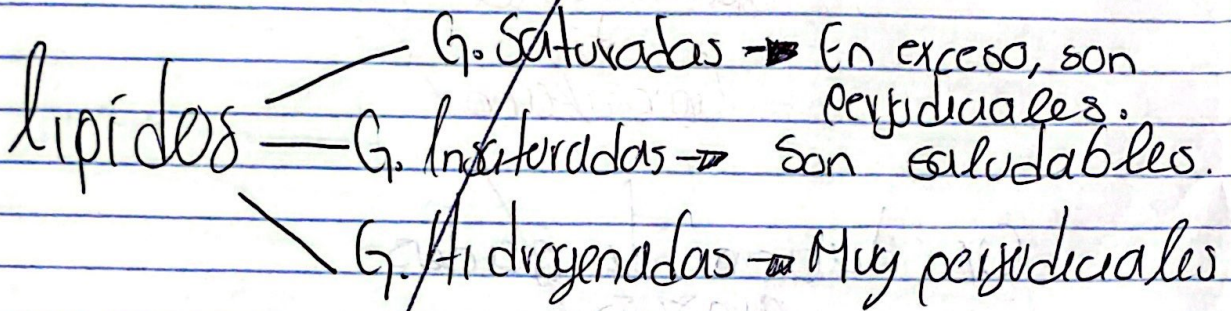 G. Saturadas → En exceso, son
perjudiciales.
lipídos
G. Insaturadas → Son saludables.
G. Hidrogenadas → Muy perjudiciales